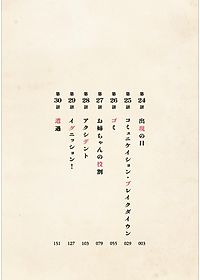 第24話 出現の日 003
第25話 コミュニケイション・ブレイクダウン 029
第26話 ゴミ 055
第27話 お姉ちゃんの役割 079
第28話 アクシデント 103
第29話 イグニッション! 127
第30話 遭遇 151